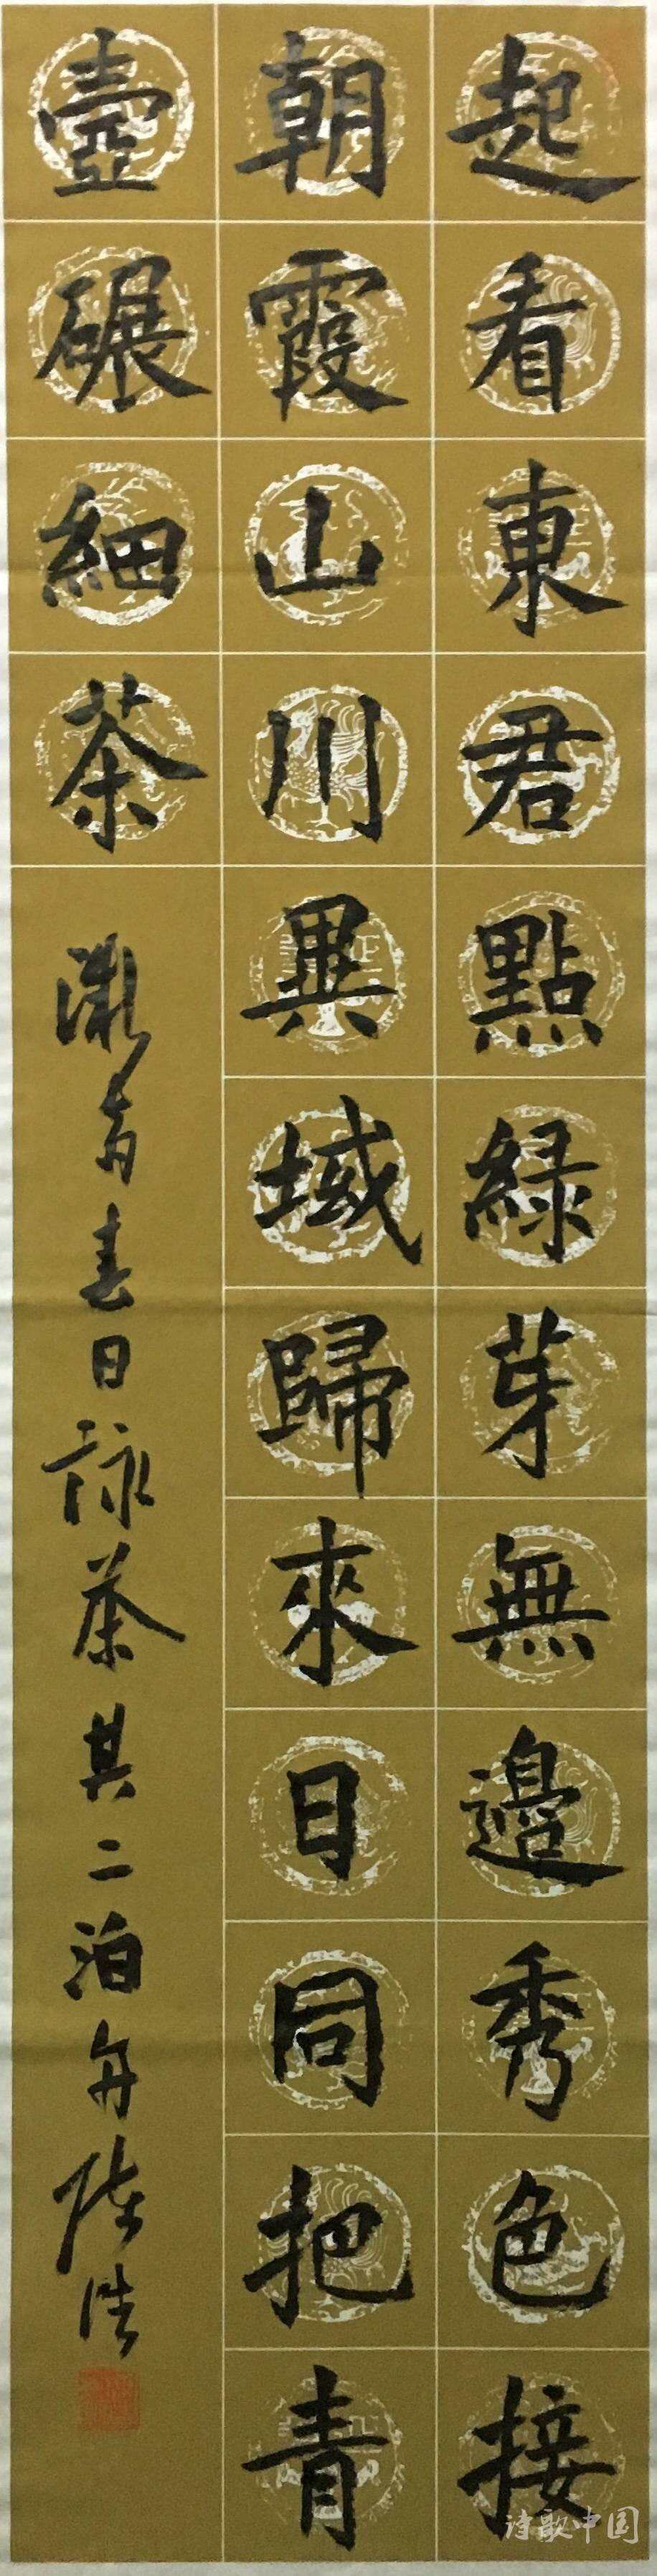 起看東君點綠芽無邊秀色接
朝霞山川異域歸來日同把青
壺碾細茶
春日詠茶其二泊舟陳浩
诗歌中国